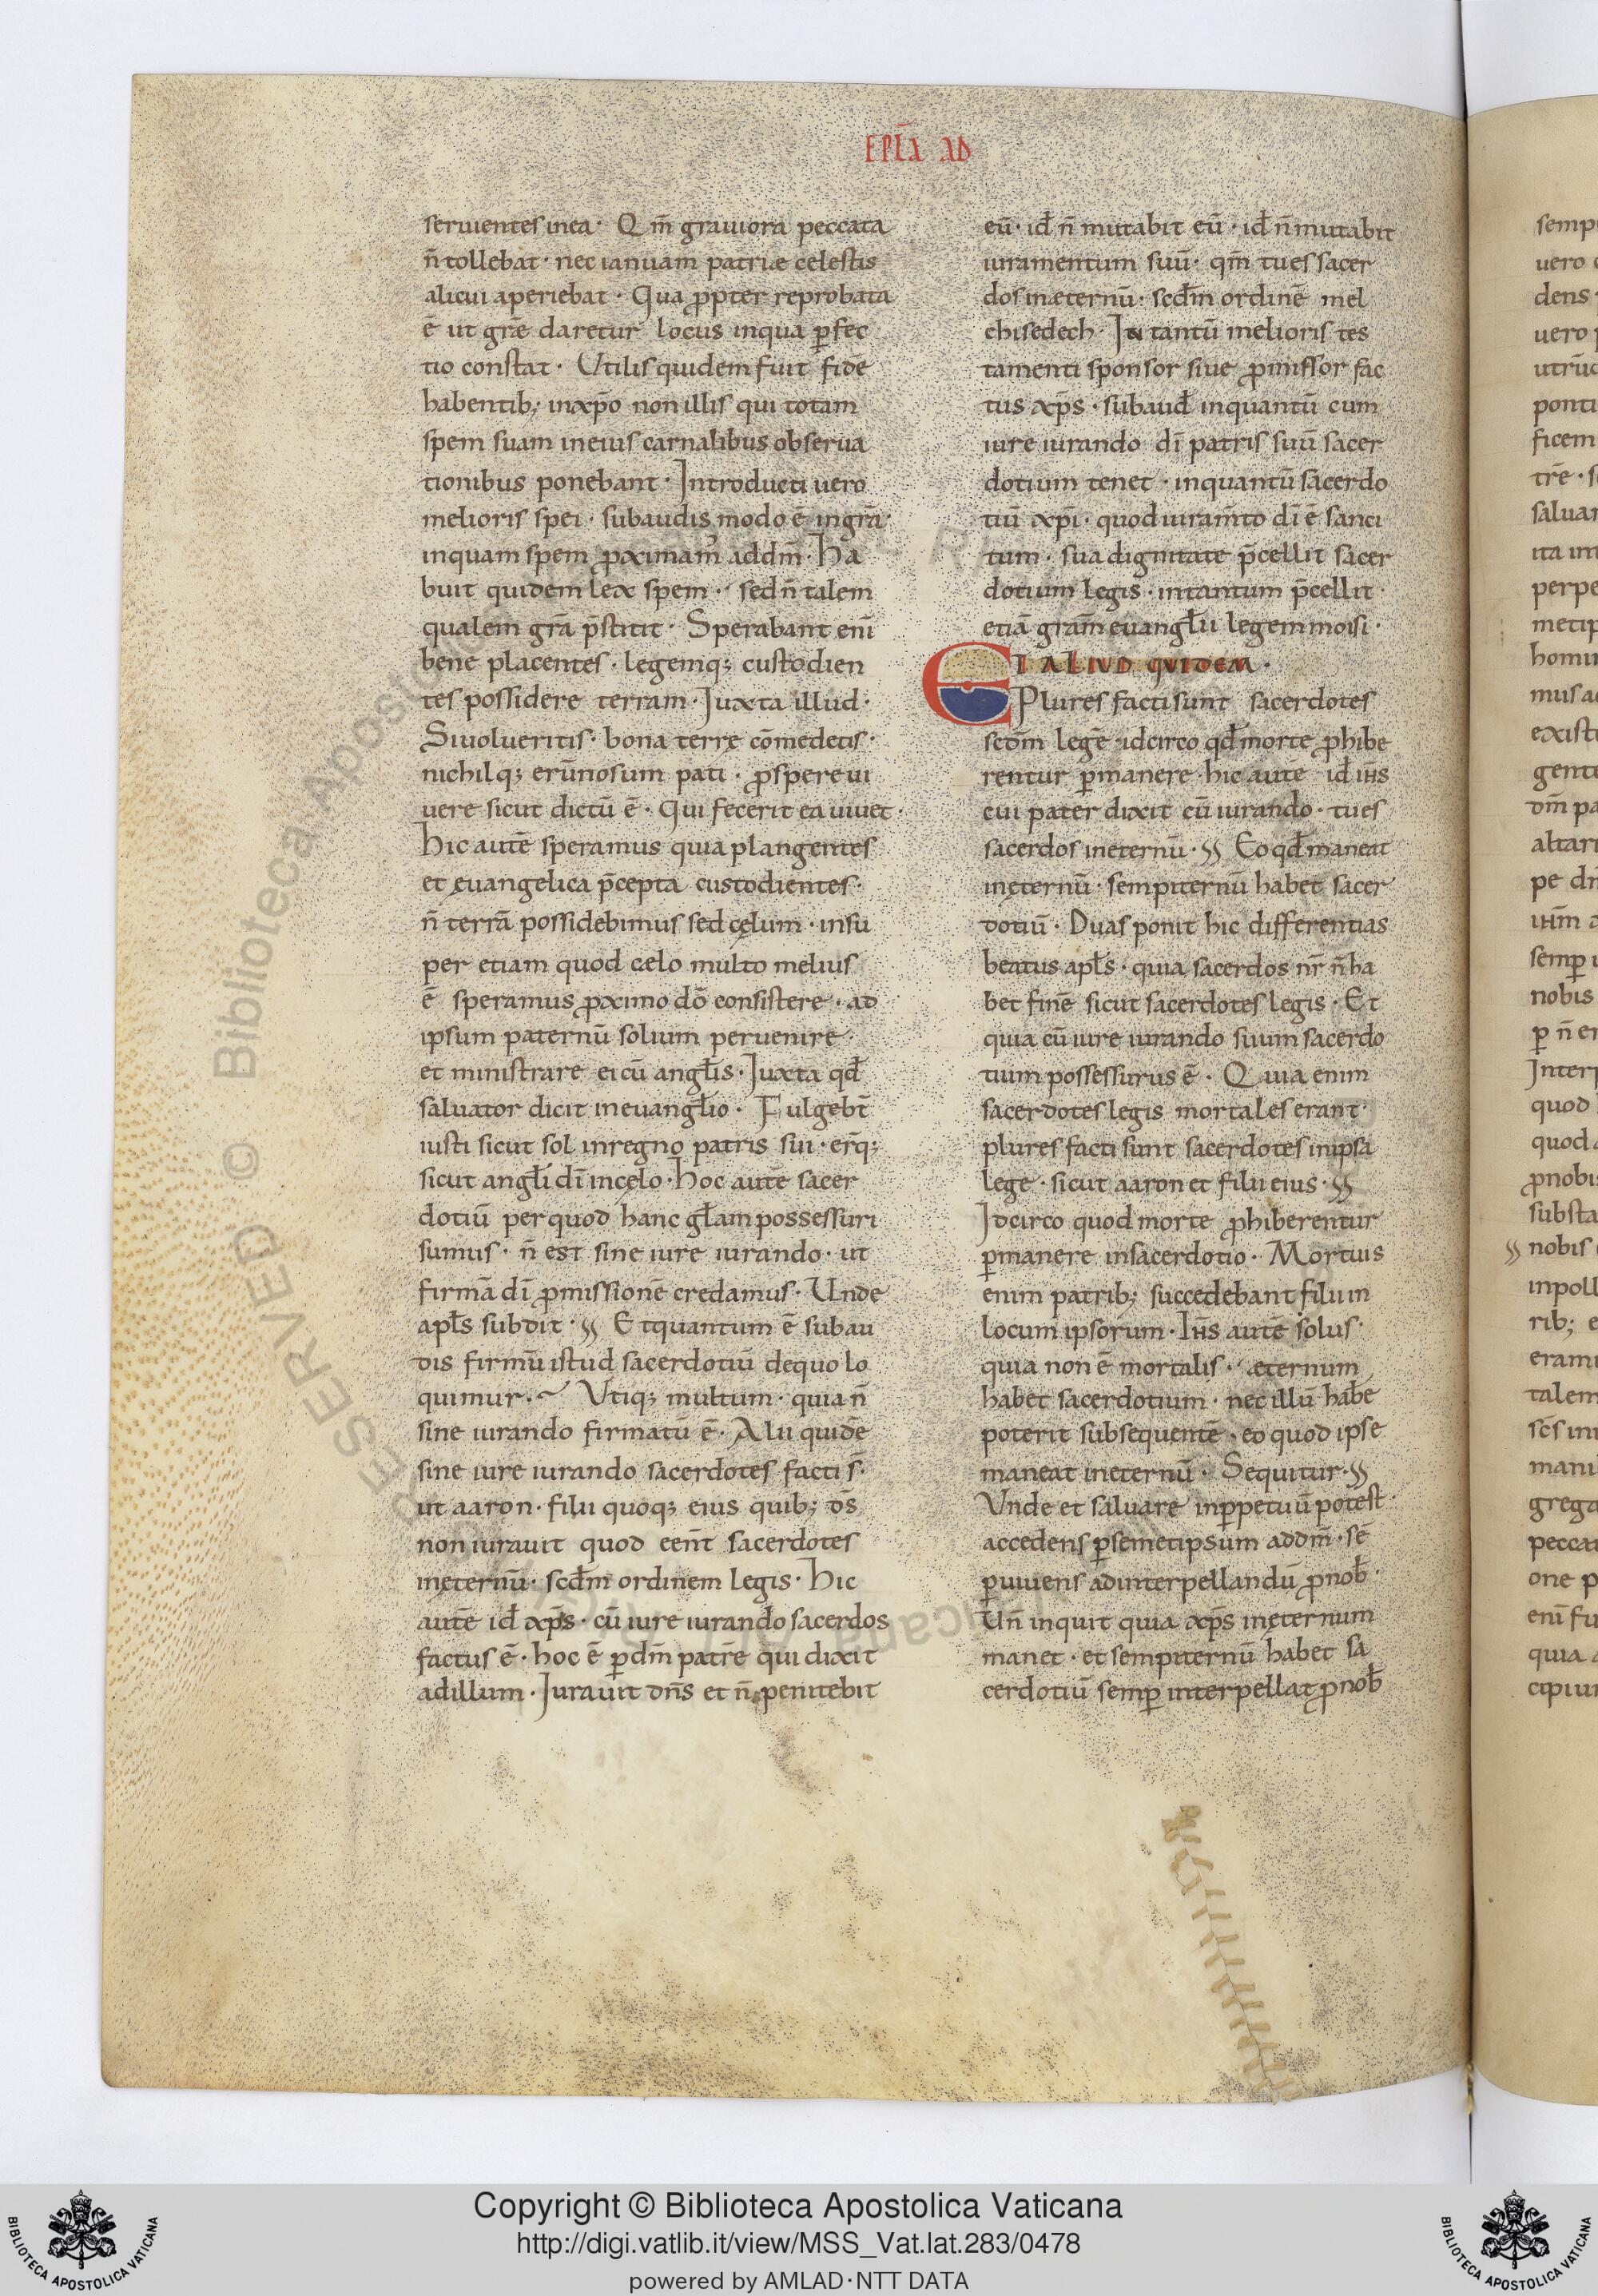 EPĪA AD
seruientes inea · Qm̄ grauiora peccata
n̄ tollebat · nec ianuam patriæ celestis
alicui aperiebat · Qua ꝓpter reprobata
ē ut grāe daretur locus inqua ꝑfec
tio constat · Utilis quidem fuit fidē
habentib; inxp̄o non illis qui totam
spem suam ineius carnalibus obserua
tionibus ponebant · Introducti uero
melioris spei · subaudis modo ē ingrā
inquam spem ꝓximam᷒ addm̄ · Ha
buit quidem lex spem · sed n̄ talem
qualem grā p̄stitit · Sperabant enī
bene placentes · legemq; custodien
tes possidere terram · Juxta illud ·
Siuolueritis · bona terrę cōmedetis ·
nichilq; erūnosum pati · ꝓspere ui
uere sicut dictū ē · Qui fecerit ea uiuet ·
Hic autē speramus quia plangentes
et euangelica p̄cepta custodientes ·
n̄ terrā possidebimus sed cęlum · insu
per etiam quod cælo multo melius
ē speramus ꝓximo dō consistere · ad
ipsum paternū solium peruenire ·
et ministrare ei cū angłis · Juxta qđ
saluator dicit ineuangłio · Fulgebt̄
iusti sicut sol inregno patris sui · er̄q;
sicut angłi dī incęlo · Hoc autē sacer
dotiū per quod hanc głam possessuri
sumus · n̄ est sine iure iurando · ut
firmā dī ꝓmissionē credamus · Unde
apłs subdit · Et quantum ē subau
dis firmū istud sacerdotiū dequo lo
quimur · Utiq; multum · quia n̄
sine iurando firmatū ē · Alii quidē
sine iure iurando sacerdotes facti s̄ ·
ut aaron · filii quoq; eius quib; ds̄
non iurauit quod eent̄ sacerdotes
inęternū · scđm ordinem legis · Hic
autē iđ xp̄s · cū iure iurando sacerdos
factus ē · hoc ē ꝑ dm̄ patrē qui dixit
ad illum · Jurauit dn̄s et n̄ penitebit
eū · iđ n̄ mutabit eū · iđ n̄ mutabit
iuramentum suū · qm̄ tu es sacer
dos inæternū · scđm ordinē mel
chisedech · In tantū melioris tes
tamenti sponsor siue ꝓmissor fac
tus xp̄s · subauđ inquantū cum
iure iurando dī patris suū sacer
dotium tenet · inquantū sacerdo
tiū xp̄i · quod iuram̄to dī ē sanci
tum · sua dignitate p̄cellit sacer
dotium legis · intantum p̄cellit ·
etiā gram̄ euangłii legem moisi ·
ET ALIUD QUIDEM ·
Plures facti sunt sacerdotes
scđm legē · idcirco qđ morte ꝓhibe
rentur ꝑmanere · hic autē iđ ih̄s
cui pater dixit cū iurando · tu es
sacerdos ineternū · Eo qđ maneat
inęternū · sempiternū habet sacer
dotiū · Duas ponit hic differentias
beatus apłs · quia sacerdos nr̄ n̄ ha
bet finē sicut sacerdotes legis · Et
quia cū iure iurando suum sacerdo
tium possessurus ē · Quia enim
sacerdotes legis mortales erant ·
plures facti sunt sacerdotes inipsa
lege · sicut aaron et filii eius ·
Idcirco quod morte ꝓhiberentur
ꝑmanere insacerdotio · Mortuis
enim patrib; succedebant filii in
locum ipsorum · Ih̄s autē solus
quia non ē mortalis · æternum
habet sacerdotium · nec illū habē
poterit subsequentē · eo quod ipse
maneat ineternū · Sequitur ·
Unde et saluare inꝑpetuū potest ·
accedens ꝑ semetipsum addm̄ · sē
ꝑ uiuens adinterpellandū ꝓ nob̄ ·
Un̄ inquit quia xp̄s inęternum
manet · et sempiternū habet sa
cerdotiū semꝑ interpellat ꝓ nob̄
Copyright © Biblioteca Apostolica Vaticana
http://digi.vatlib.it/view/MSS_Vat.lat.283/0478
powered by AMLAD·NTT DATA